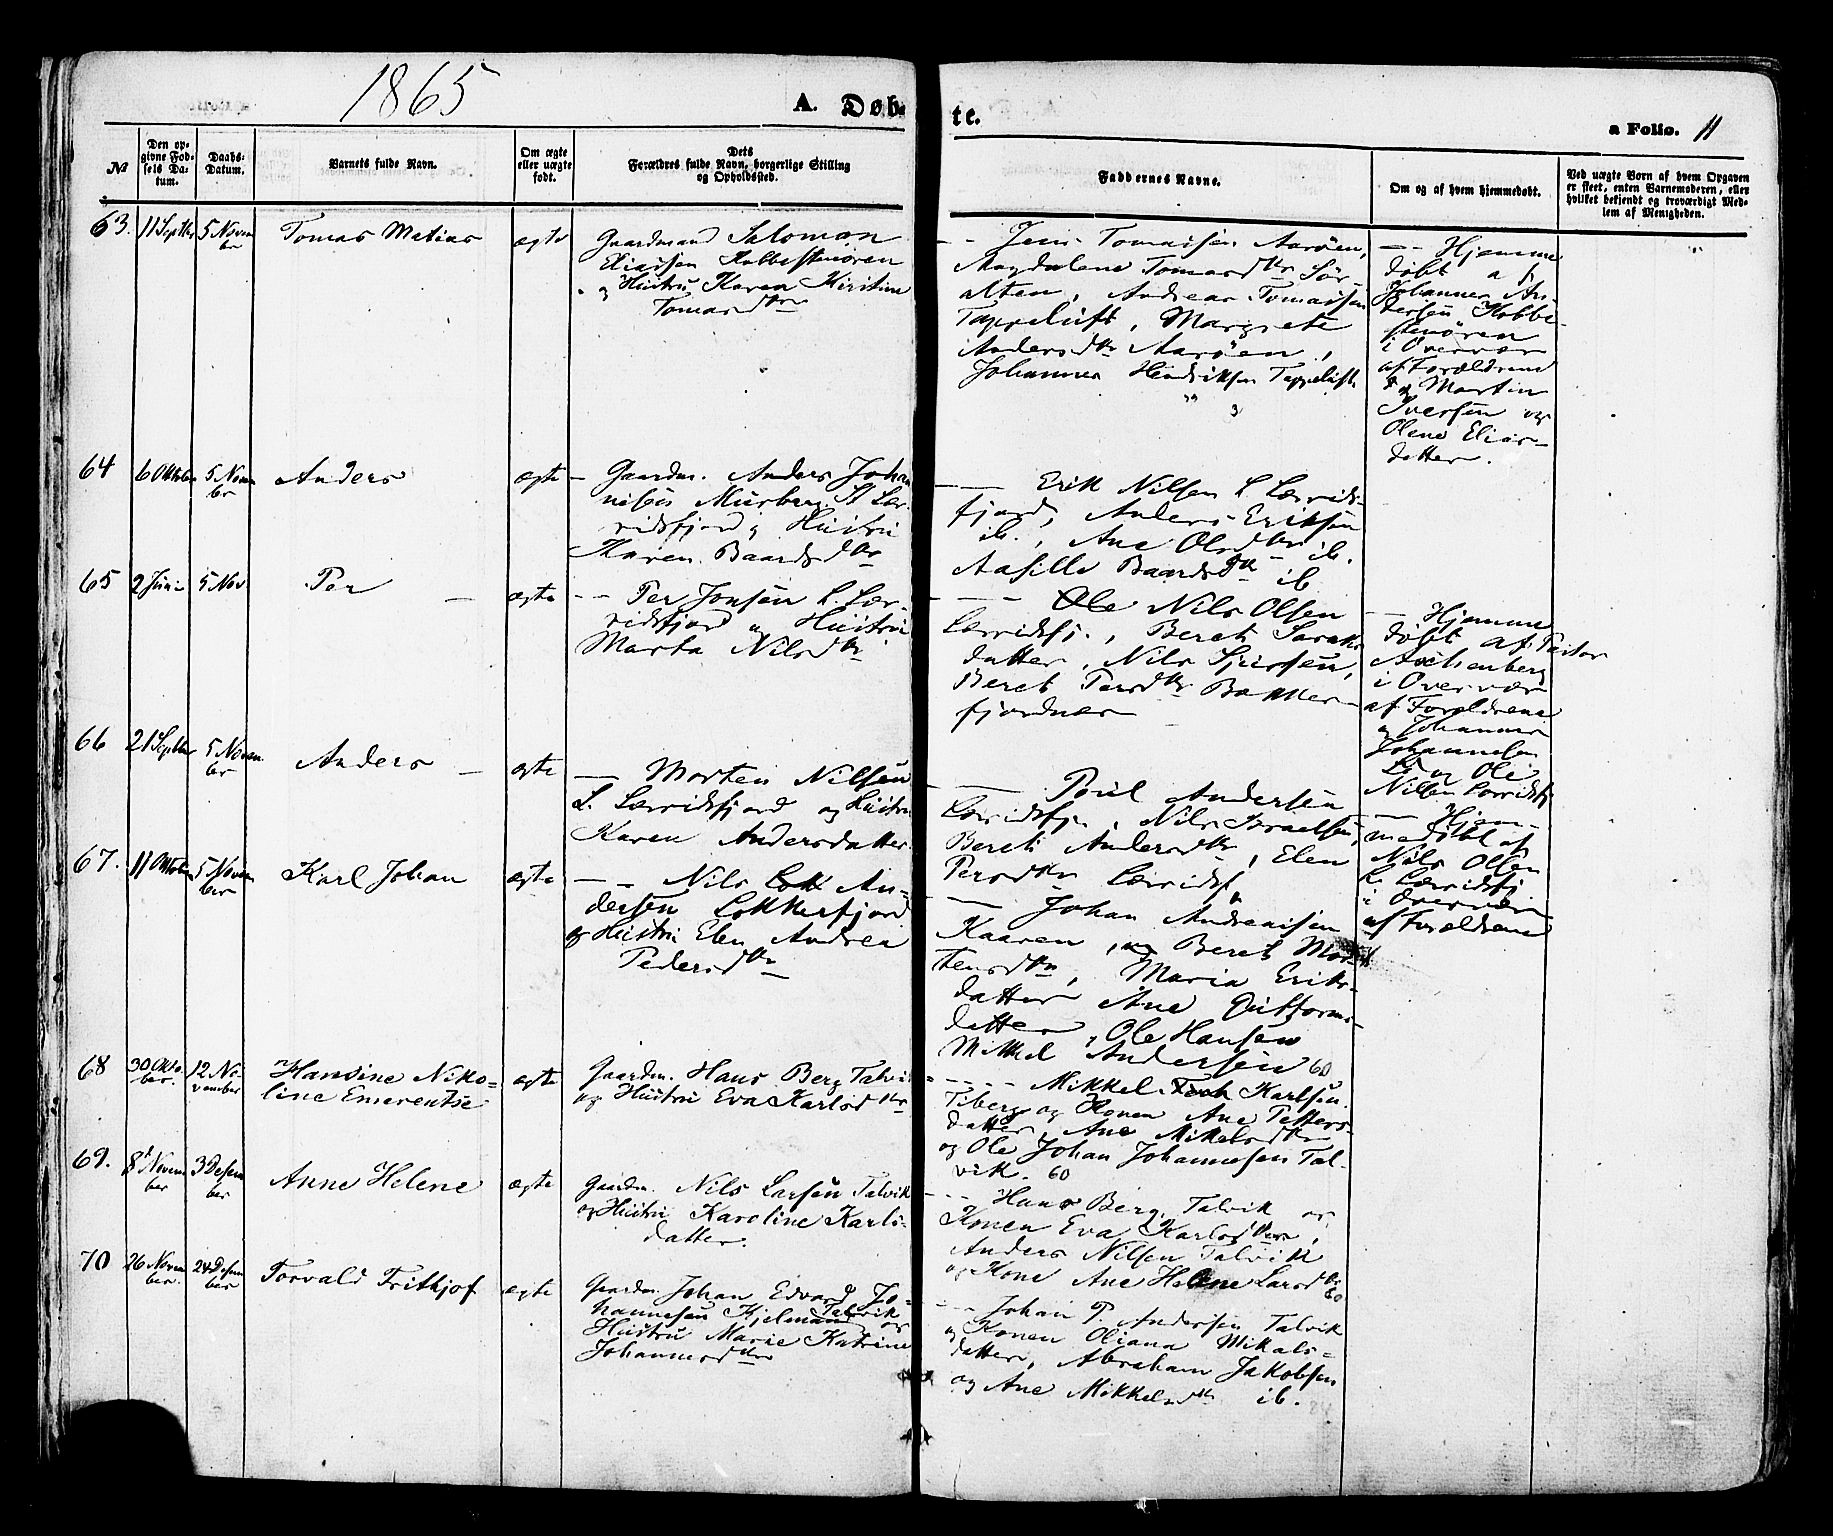 1865
A. Døbte.
a Folio. 11
№
Den opgivne Fødsels Datum.
Daabs-Datum.
Barnets fulde Navn.
Om ægte eller uægte født.
Dets Forældres fulde Navn, borgerlige Stilling og Opholdssted.
Faddernes Navne.
Om og af hvem hjemmedøbt.
Ved uægte Børn af hvem Opgaven er skeet, enten Barnemoderen, eller hvilket bekjendt og troværdigt Medlem af Menigheden.
63.
11 Septbr
5 Novem
ber
Tomas Matias
ægte
Gaardmand Salomon
Eliassen Kobbestenøren
og Hustru Karen Kirstine
Tomasdtr
-- Jens Tomassen Aarøen,
Magdalene Tomasdtr Sør
alten, Andreas Tomassen
Tappeluft, Margrete
Andersdtr Aarøen,
Johannes Hendriksen Tappeluft
-- Hjemme
døbt af
Johannes An-
dersen Kobbe-
stenøren
i Overvær
af Forældrene
og Martin
Iversen og
Olene Elias-
datter.
64
6 Oktober
5 Novem
ber
Anders
ægte
- Gaardm. Anders Johan
nesen Murberg St Lær-
ridsfjord og Hustru
Karen Baardsdtr
-- Erik Nilsen L Lærrids-
fjord, Anders Eriksen
ib., Ane Olsdtr ib.
Aasille Baardsdtr ib
65
2 Juni
5 Nov
Per -
ægte
-- Per Jonsen L. Lær-
ridsfjord og Hustru
Marta Nilsdtr
--- Ole Nils Olsen
Lærridsfj., Beret Sara
datter, Nils
Beret Persdtr Bakker-
fjordnær
- Hjemme
døbt af Pastor
Aschenberg
i Overvær
af Forældrene
og Johannes
Johannesen
og Ole
Nilsen Lærridsfj
66
21 Septbr
5 Novem
ber
Anders -
ægte
- Morten Nilsen
L. Lærridsfjord og Hustru
Karen Andersdatter.
-- Poul Andersen
Lærridsfj., Nils Israelsen,
Beret Andersdtr, Elen
Persdtr Lærridsf
- Hjem-
medøbt af
Nils Olsen
L. Lærridsfj
i Overvær
af Forældrene
67.
11 Oktober
5 Novem
ber
Karl Johan
ægte
-- Nils Lok An-
dersen Lokkerfjord
og Hustru Elen Andrea
Pedersdtr
- Johan Andreassen
Kaaven, og Beret Mor
tensdtr, Maria Eriks-
datter Ane
datter, Ole Hansen
Mikkel Andersen
68
30 Okto-
ber.
12 No-
vember
Hansine Niko-
line Emerentse
ægte
Gaardm. Hans Berg Talvik
og Hustru Eva Karlsdtr
---- Mikkel Karlsen
Tiberg og Konen Ane Petters-
datter, Ane Mikkelsdtr
og Ole Johan Johannesen Tal-
vik.
69.
8 Novem
ber
3 Desem
ber
Anne Helene
ægte
Gaardm. Nils Larsen Talvik
og Hustru Karoline Karls-
datter.
--- Hans Berg, Talvik og
Konen Eva Karlsdtr,
Anders Nilsen Talvik
og Kone Ane Helene Larsdtr
70
26 Novem
ber.
24 Desem
ber
Torvald Fritkjof
ægte
Gaardm. Johan Edvard Jo-
hannesen Kjelmand Talvik og
Hustru Marie Katrine
Johannesdtr
--- Johan P. Andersen Talvik
og Konen Oliana Mikals-
datter, Abraham Jakobsen
og Ane Mikkelsdtr ib.